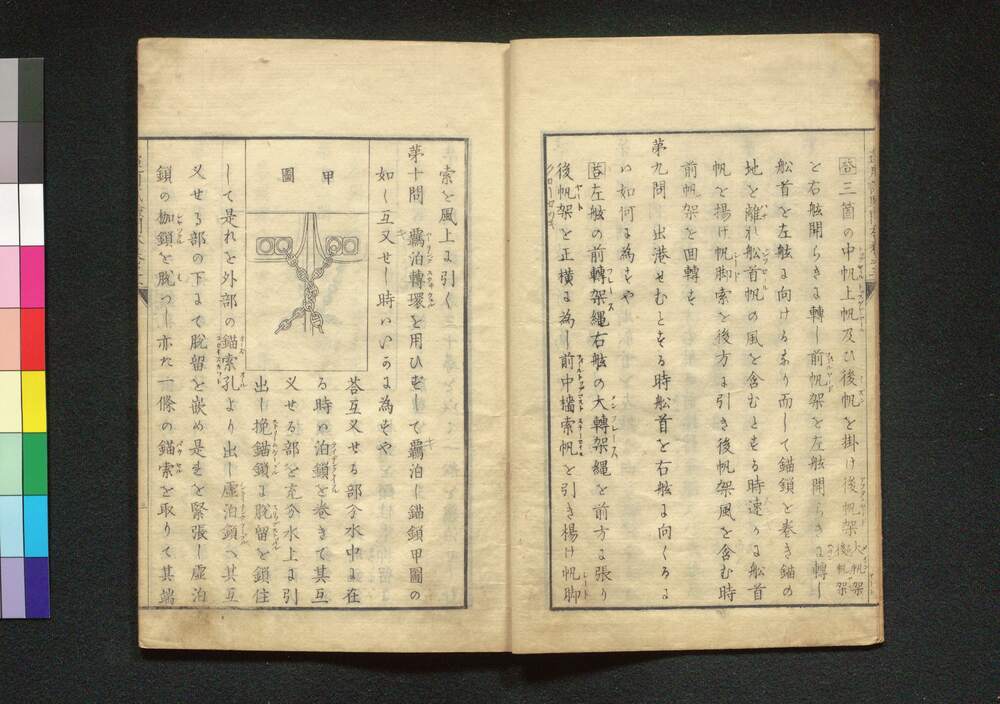 答三箇の中帆上帆及ひ後帆を掛け後帆架 大帆架後帆架
と右舷開らきに轉し前帆架を左舷開らきに轉し
舩首を左舷に向けるあり而して錨鎖を巻き錨の
地を離れ舩首帆の風を含むとする時速かに舩首
帆を揚け帆脚索を後方に引き後帆架風を含む時
前帆架を回轉す
第九問 出港せむとする時舩首を右舷に向くるに
い如何に為すや
答左舷の前轉架繩右舷の大轉架繩を前方に張り
後帆架を正横に為し前中檣索帆を引き揚け帆脚
索を風上に引く
第十問 羈泊轉環を用ひすして羈泊し錨鎖甲圖の
如し互叉せし時いいかに為すや
甲圖
答互叉せる部分水中に在
る時い泊鎖を巻きて其互
叉せる部を充分水上に引
出し挽錨鎖に脫留を鎖住
して是れを外部の錨索孔より出し虚泊鎖へ其互
叉せる部の下まて脫留を嵌め是をを緊張し虚泊
鎖の枷鎖を脫つし亦た一條の錨索を取りて其端